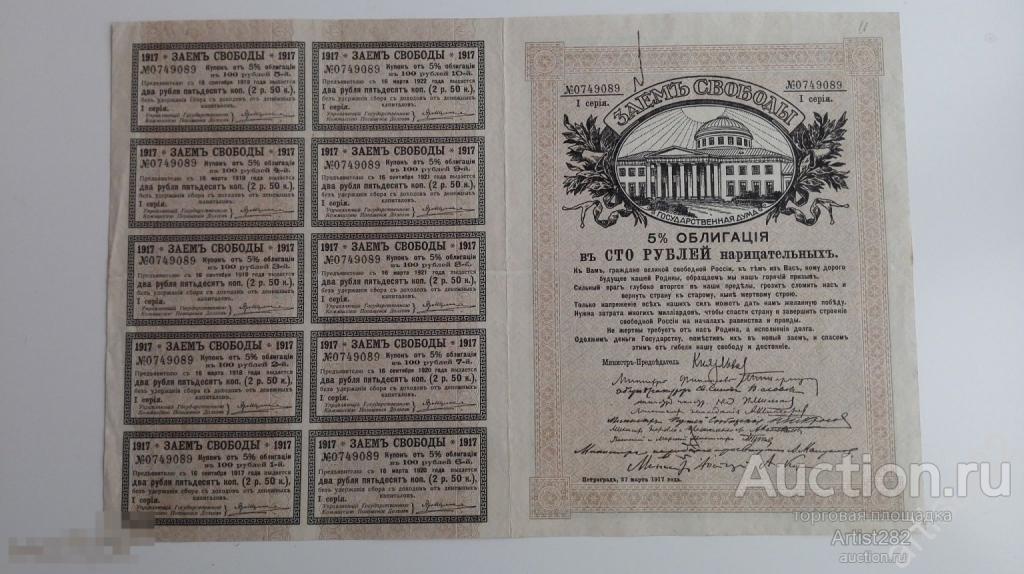 1917 * ЗАЕМЪ СВОБОДЫ * 1917
№0749089 Купонъ отъ 5% облигаціи
въ 100 рублей 5-й.
Предъявителю съ 16 сентября 1919 года выдается
два рубля пятьдесятъ коп. (2 р. 50 к.),
безъ удержанія сбора съ доходовъ отъ денежныхъ
капиталовъ.
I серія.
Управляющій Государственною
Коммиссіею Погашенія Долговъ
1917 * ЗАЕМЪ СВОБОДЫ * 1917
№0749089 Купонъ отъ 5% облигаціи
въ 100 рублей 10-й.
Предъявителю съ 16 марта 1922 года выдается
два рубля пятьдесятъ коп. (2 р. 50 к.),
безъ удержанія сбора съ доходовъ отъ денежныхъ
капиталовъ.
I серія.
Управляющій Государственною
Коммиссіею Погашенія Долговъ
1917 * ЗАЕМЪ СВОБОДЫ * 1917
№0749089 Купонъ отъ 5% облигаціи
въ 100 рублей 4-й.
Предъявителю съ 16 марта 1919 года выдается
два рубля пятьдесятъ коп. (2 р. 50 к.),
безъ удержанія сбора съ доходовъ отъ денежныхъ
капиталовъ.
I серія.
Управляющій Государственною
Коммиссіею Погашенія Долговъ
1917 * ЗАЕМЪ СВОБОДЫ * 1917
№0749089 Купонъ отъ 5% облигаціи
въ 100 рублей 9-й.
Предъявителю съ 16 сентября 1921 года выдается
два рубля пятьдесятъ коп. (2 р. 50 к.),
безъ удержанія сбора съ доходовъ отъ денежныхъ
капиталовъ.
I серія.
Управляющій Государственною
Коммиссіею Погашенія Долговъ
1917 * ЗАЕМЪ СВОБОДЫ * 1917
№0749089 Купонъ отъ 5% облигаціи
въ 100 рублей 3-й.
Предъявителю съ 16 сентября года выдается
два рубля пятьдесятъ коп. (2 р. 50 к.),
безъ удержанія сбора съ доходовъ отъ денежныхъ
капиталовъ.
I серія.
Управляющій Государственною
Коммиссіею Погашенія Долговъ
1917 * ЗАЕМЪ СВОБОДЫ * 1917
№0749089 Купонъ отъ 5% облигаціи
въ 100 рублей 8-й.
Предъявителю съ 16 марта 1921 года выдается
два рубля пятьдесятъ коп. (2 р. 50 к.),
безъ удержанія сбора съ доходовъ отъ денежныхъ
капиталовъ.
I серія.
Управляющій Государственною
Коммиссіею Погашенія Долговъ
1917 * ЗАЕМЪ СВОБОДЫ * 1917
№0749089 Купонъ отъ 5% облигаціи
въ 100 рублей 2-й.
Предъявителю съ 16 марта 1918 года выдается
два рубля пятьдесятъ коп. (2 р. 50 к.),
безъ удержанія сбора съ доходовъ отъ денежныхъ
капиталовъ.
I серія.
Управляющій Государственною
Коммиссіею Погашенія Долговъ
1917 * ЗАЕМЪ СВОБОДЫ * 1917
№0749089 Купонъ отъ 5% облигаціи
въ 100 рублей 7-й.
Предъявителю съ 16 сентября 1920 года выдается
два рубля пятьдесятъ коп. (2 р. 50 к.),
безъ удержанія сбора съ доходовъ отъ денежныхъ
капиталовъ.
I серія.
Управляющій Государственною
Коммиссіею Погашенія Долговъ
1917 * ЗАЕМЪ СВОБОДЫ * 1917
№0749089 Купонъ отъ 5% облигаціи
въ 100 рублей 1-й.
Предъявителю съ 16 сентября 1917 года выдается
два рубля пятьдесятъ коп. (2 р. 50 к.),
безъ удержанія сбора съ доходовъ отъ денежныхъ
капиталовъ.
I серія.
Управляющій Государственною
Коммиссіею Погашенія Долговъ
1917 * ЗАЕМЪ СВОБОДЫ * 1917
№0749089 Купонъ отъ 5% облигаціи
въ 100 рублей 6-й.
Предъявителю съ 16 марта 1920 года выдается
два рубля пятьдесятъ коп. (2 р. 50 к.),
безъ удержанія сбора съ доходовъ отъ денежныхъ
капиталовъ.
I серія.
Управляющій Государственною
Коммиссіею Погашенія Долговъ
№0749089 №0749089
I серія. I серія.
ЗАЕМЪ СВОБОДЫ
ГОСУДАРСТВЕННАЯ ДУМА
5% ОБЛИГАЦІЯ
въ СТО РУБЛЕЙ нарицательныхъ.
Къ Вамъ, граждане великой свободной Россіи, къ тѣмъ изъ Васъ, кому дорого
будущее нашей Родины, обращаемъ мы нашъ горячій призывъ.
Сильный врагъ глубоко вторгся въ наши предѣлы, грозитъ сломить насъ и
вернуть страну къ старому, нынѣ мертвому строю.
Только напряженіе всѣхъ нашихъ силъ можетъ дать намъ желанную побѣду.
Нужна затрата многихъ милліардовъ, чтобы спасти страну и завершить строеніе
свободной Россіи на началахъ равенства и правды.
Не жертвы требуетъ отъ насъ Родина, а исполненія долга.
Одолжимъ деньги Государству, помѣстивъ ихъ въ новый заемъ, и спасемъ
этимъ отъ гибели нашу свободу и достояніе.
Министръ-Предсѣдатель Князь Львовъ
Петроградъ, 27 марта 1917 года.
Auction.ru
торговая площадка
Artist282
auction.ru